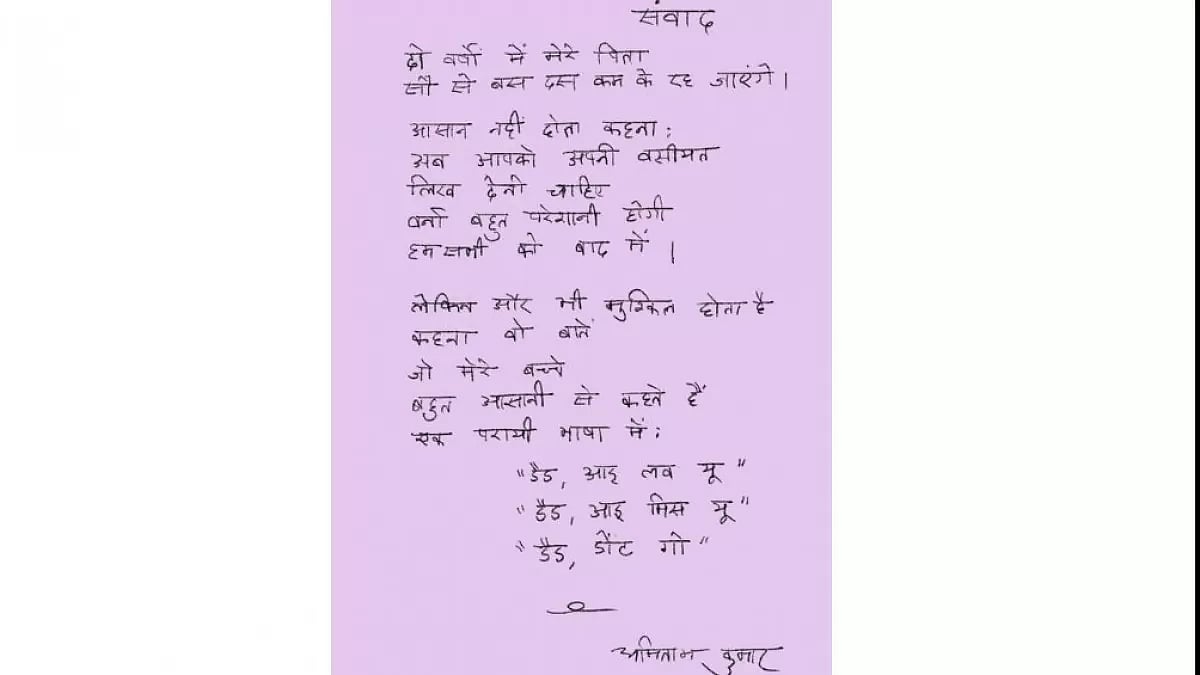 संवाद
दो वर्षों में मेरे पिता
सौ से बस दस कम के रह जाएंगे।
आसान नहीं होता कहना:
अब आपको अपनी वसीयत
लिख देनी चाहिए
वर्ना बहुत परेशानी होगी
हम सभी को बाद में।
लेकिन और भी मुश्किल होता है
कहना वो बातें
जो मेरे बच्चे
बहुत आसानी से कहते हैं
एक परायी भाषा में:
"डैड, आइ लव यू"
"डैड, आइ मिस यू"
"डैड, डोंट गो"
अमिताभ कुमार